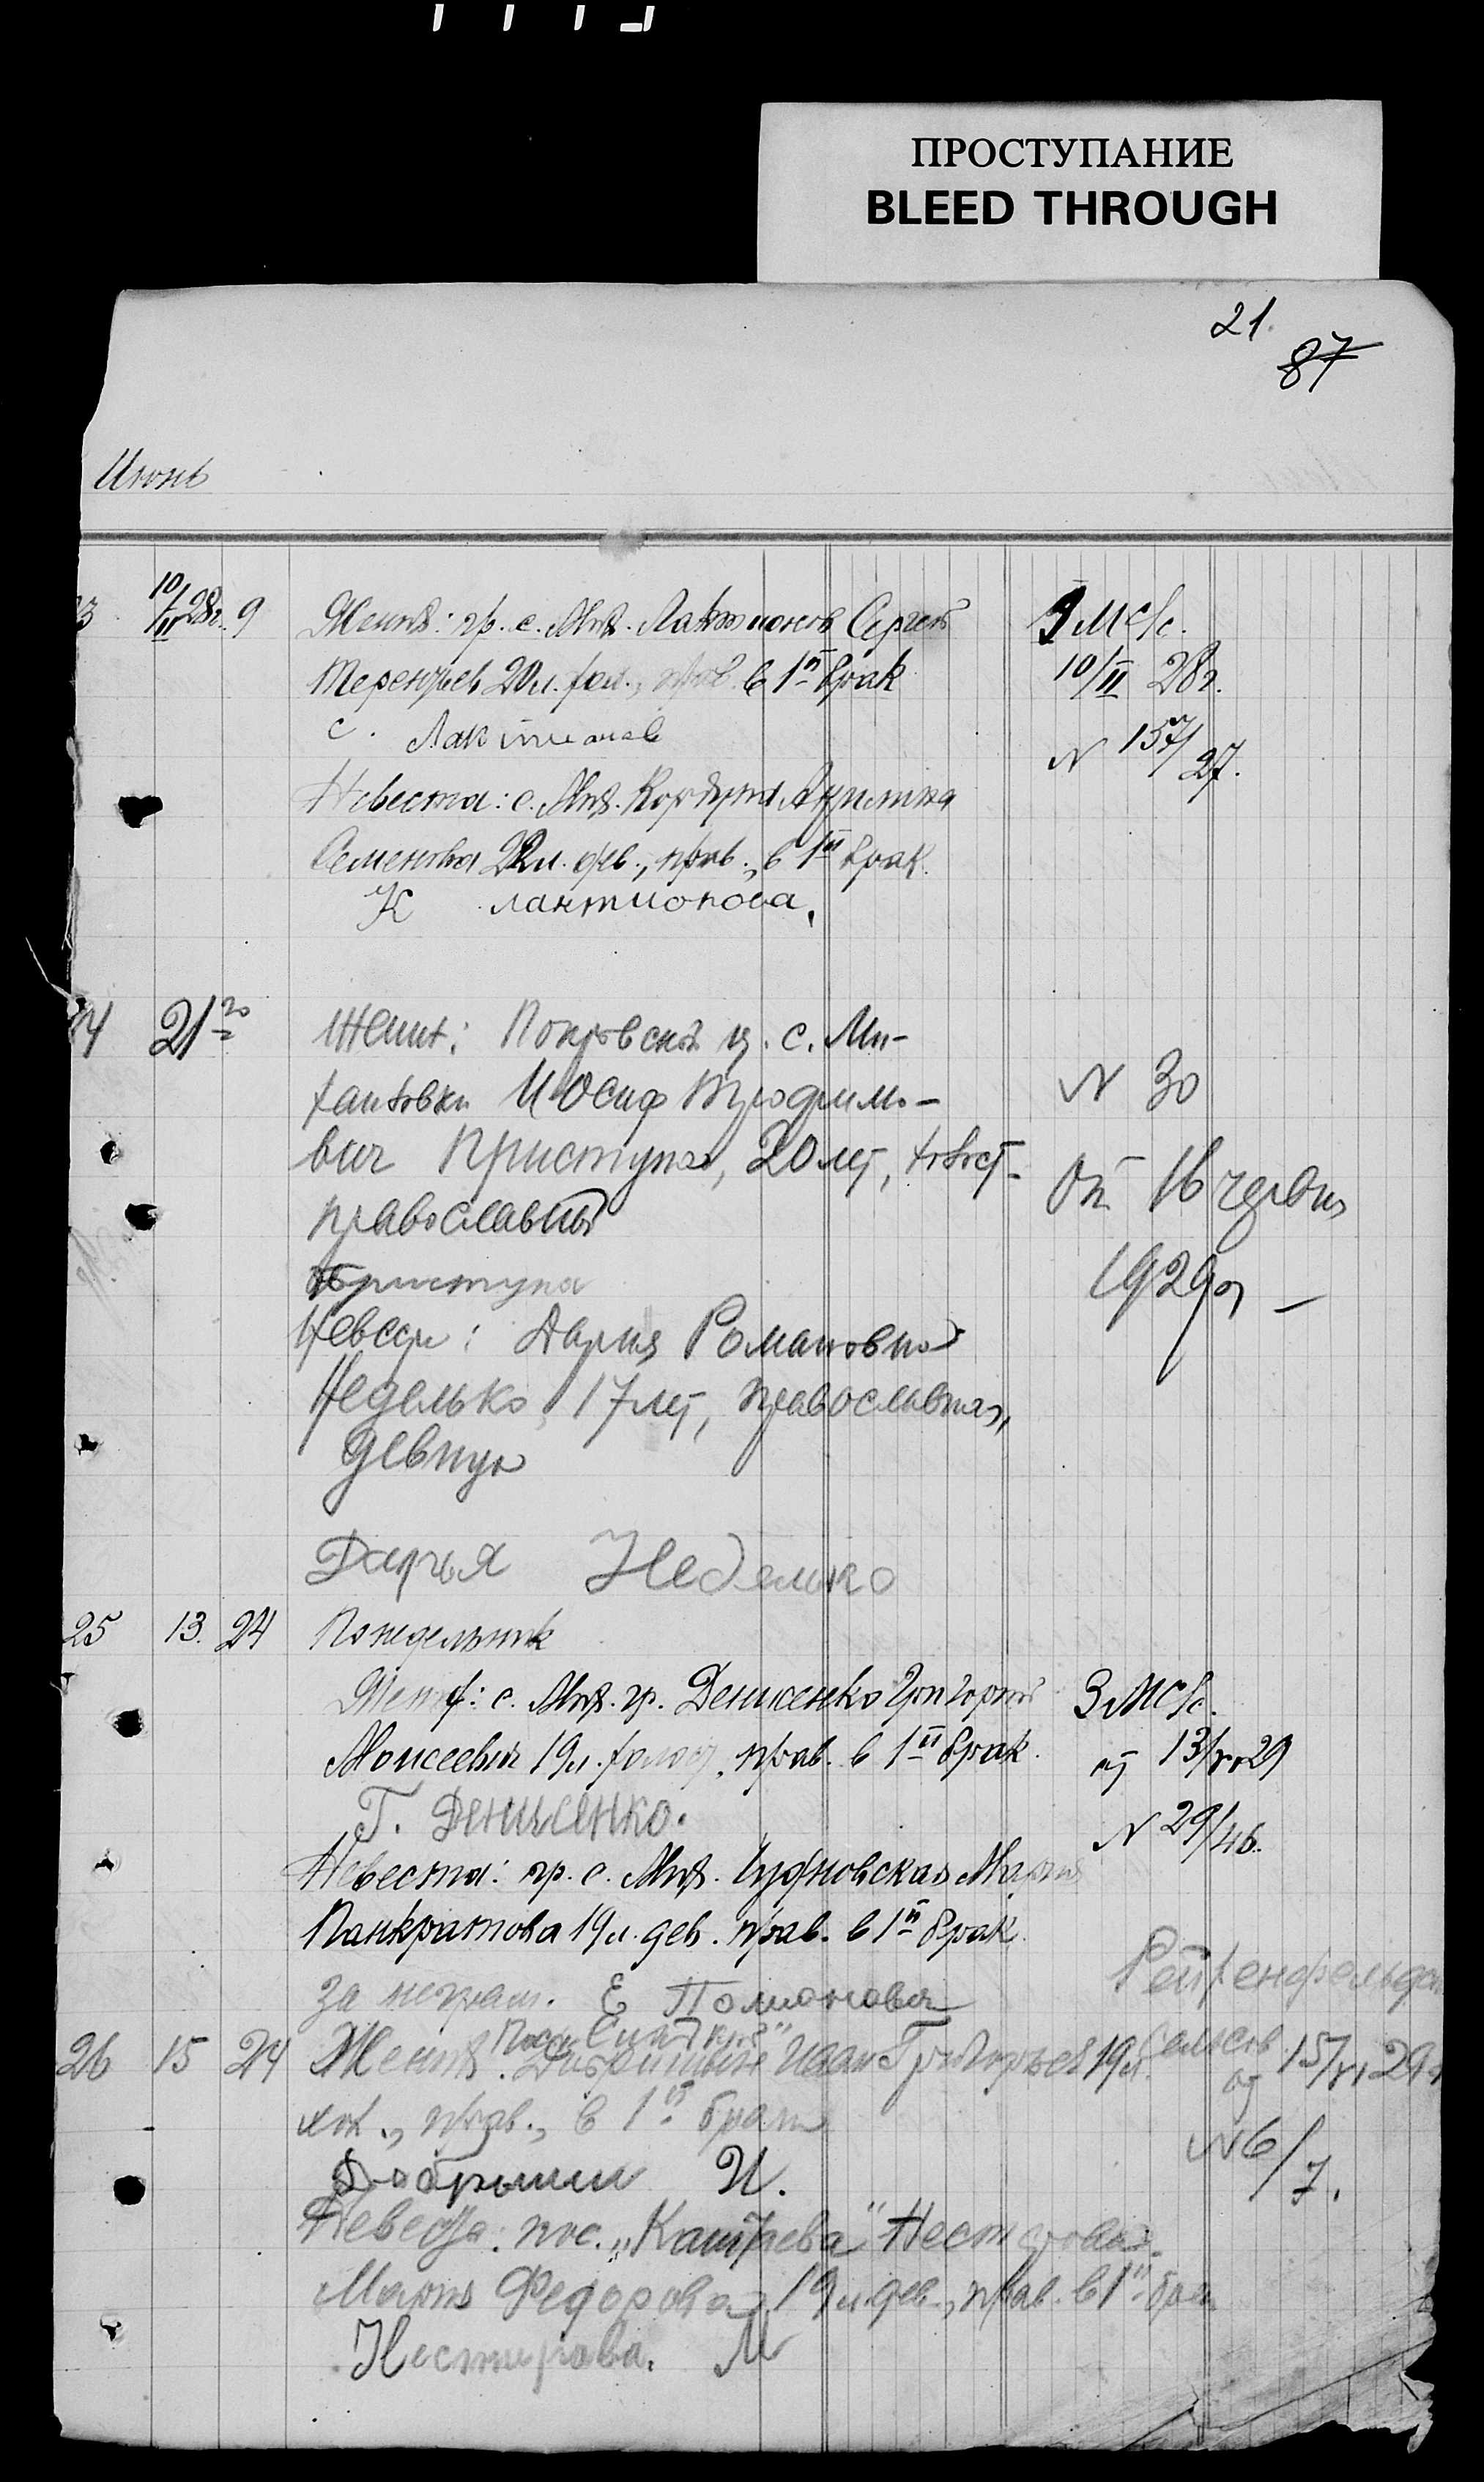 ПРОСТУПАНИЕ
BLEED THROUGH
21.
87
Июнь
3 10/II 28г. 9 Жених: гр. с. Мих. Лактионов Сергей
Терентьев 20 л. хол., прав. в 1й брак
С. Лактионов
Невеста: с. Мих. Акулина
Семенова 22 л. дев., прав., в 1й брак.
К лактионова.
МС/с.
10/II 28г.
N 157/27.
4 21го Жених: Покровской ц. с. Ми-
хайловки Иосиф
вич Приступа, 20 лет, холост
православный
Приступа
Невеста: Дария Романовна
Неделько, 17 лет, православная,
девица
Дарья Неделько
N 30
От 16 червня
1929 г
25 13. 24 Понедельник
Жених: с. Мих. гр. Денисенко Григорий
Моисеевич 19 л. холост, прав. в 1й брак.
Г. Денисенко.
Невеста: гр. с. Мих. Чудновская Мария
Панкратова 19 л. дев. прав. в 1й брак.
За неграм. Е
З МС/с.
от 13/VI 29
N 29/46.
26 15 24 Жених. Иван Григорьев 19 л.
хол., прав., в 1й брак
Добрынин И.
Невеста: пос. Нестерова
Мария Федорова, 19 л. дев., прав. в 1й брак
Нестерова. М
сельсов.
от 15/VI 29 г
N 6/7.